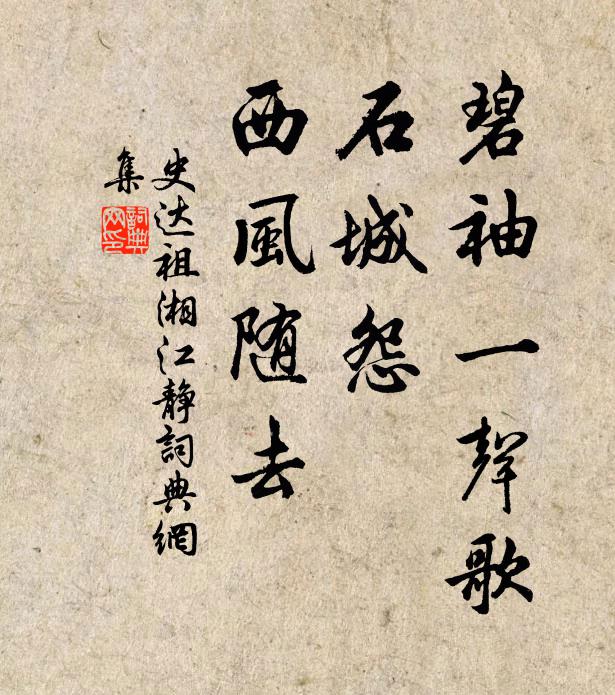 碧袖一聲歌
石城怨
西風随去
史达祖湘江静詞典網
集
詞典
网印